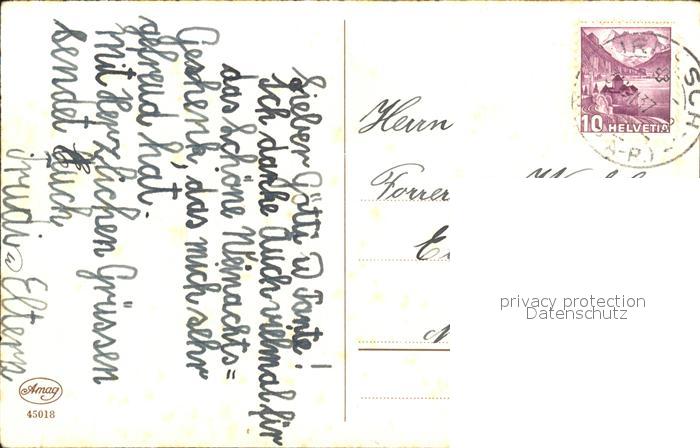 Lieber Götti u Tante!
Ich danke Euch vielmal für
das schöne Weinachts=
Geschenk, das mich sehr
gefreud hat.
Mit herzlichen Grüssen
sendet Euch
Trudi u Eltern
Amag
45018
Herrn
Forrer
10 HELVETIA
privacy protection
Datenschutz